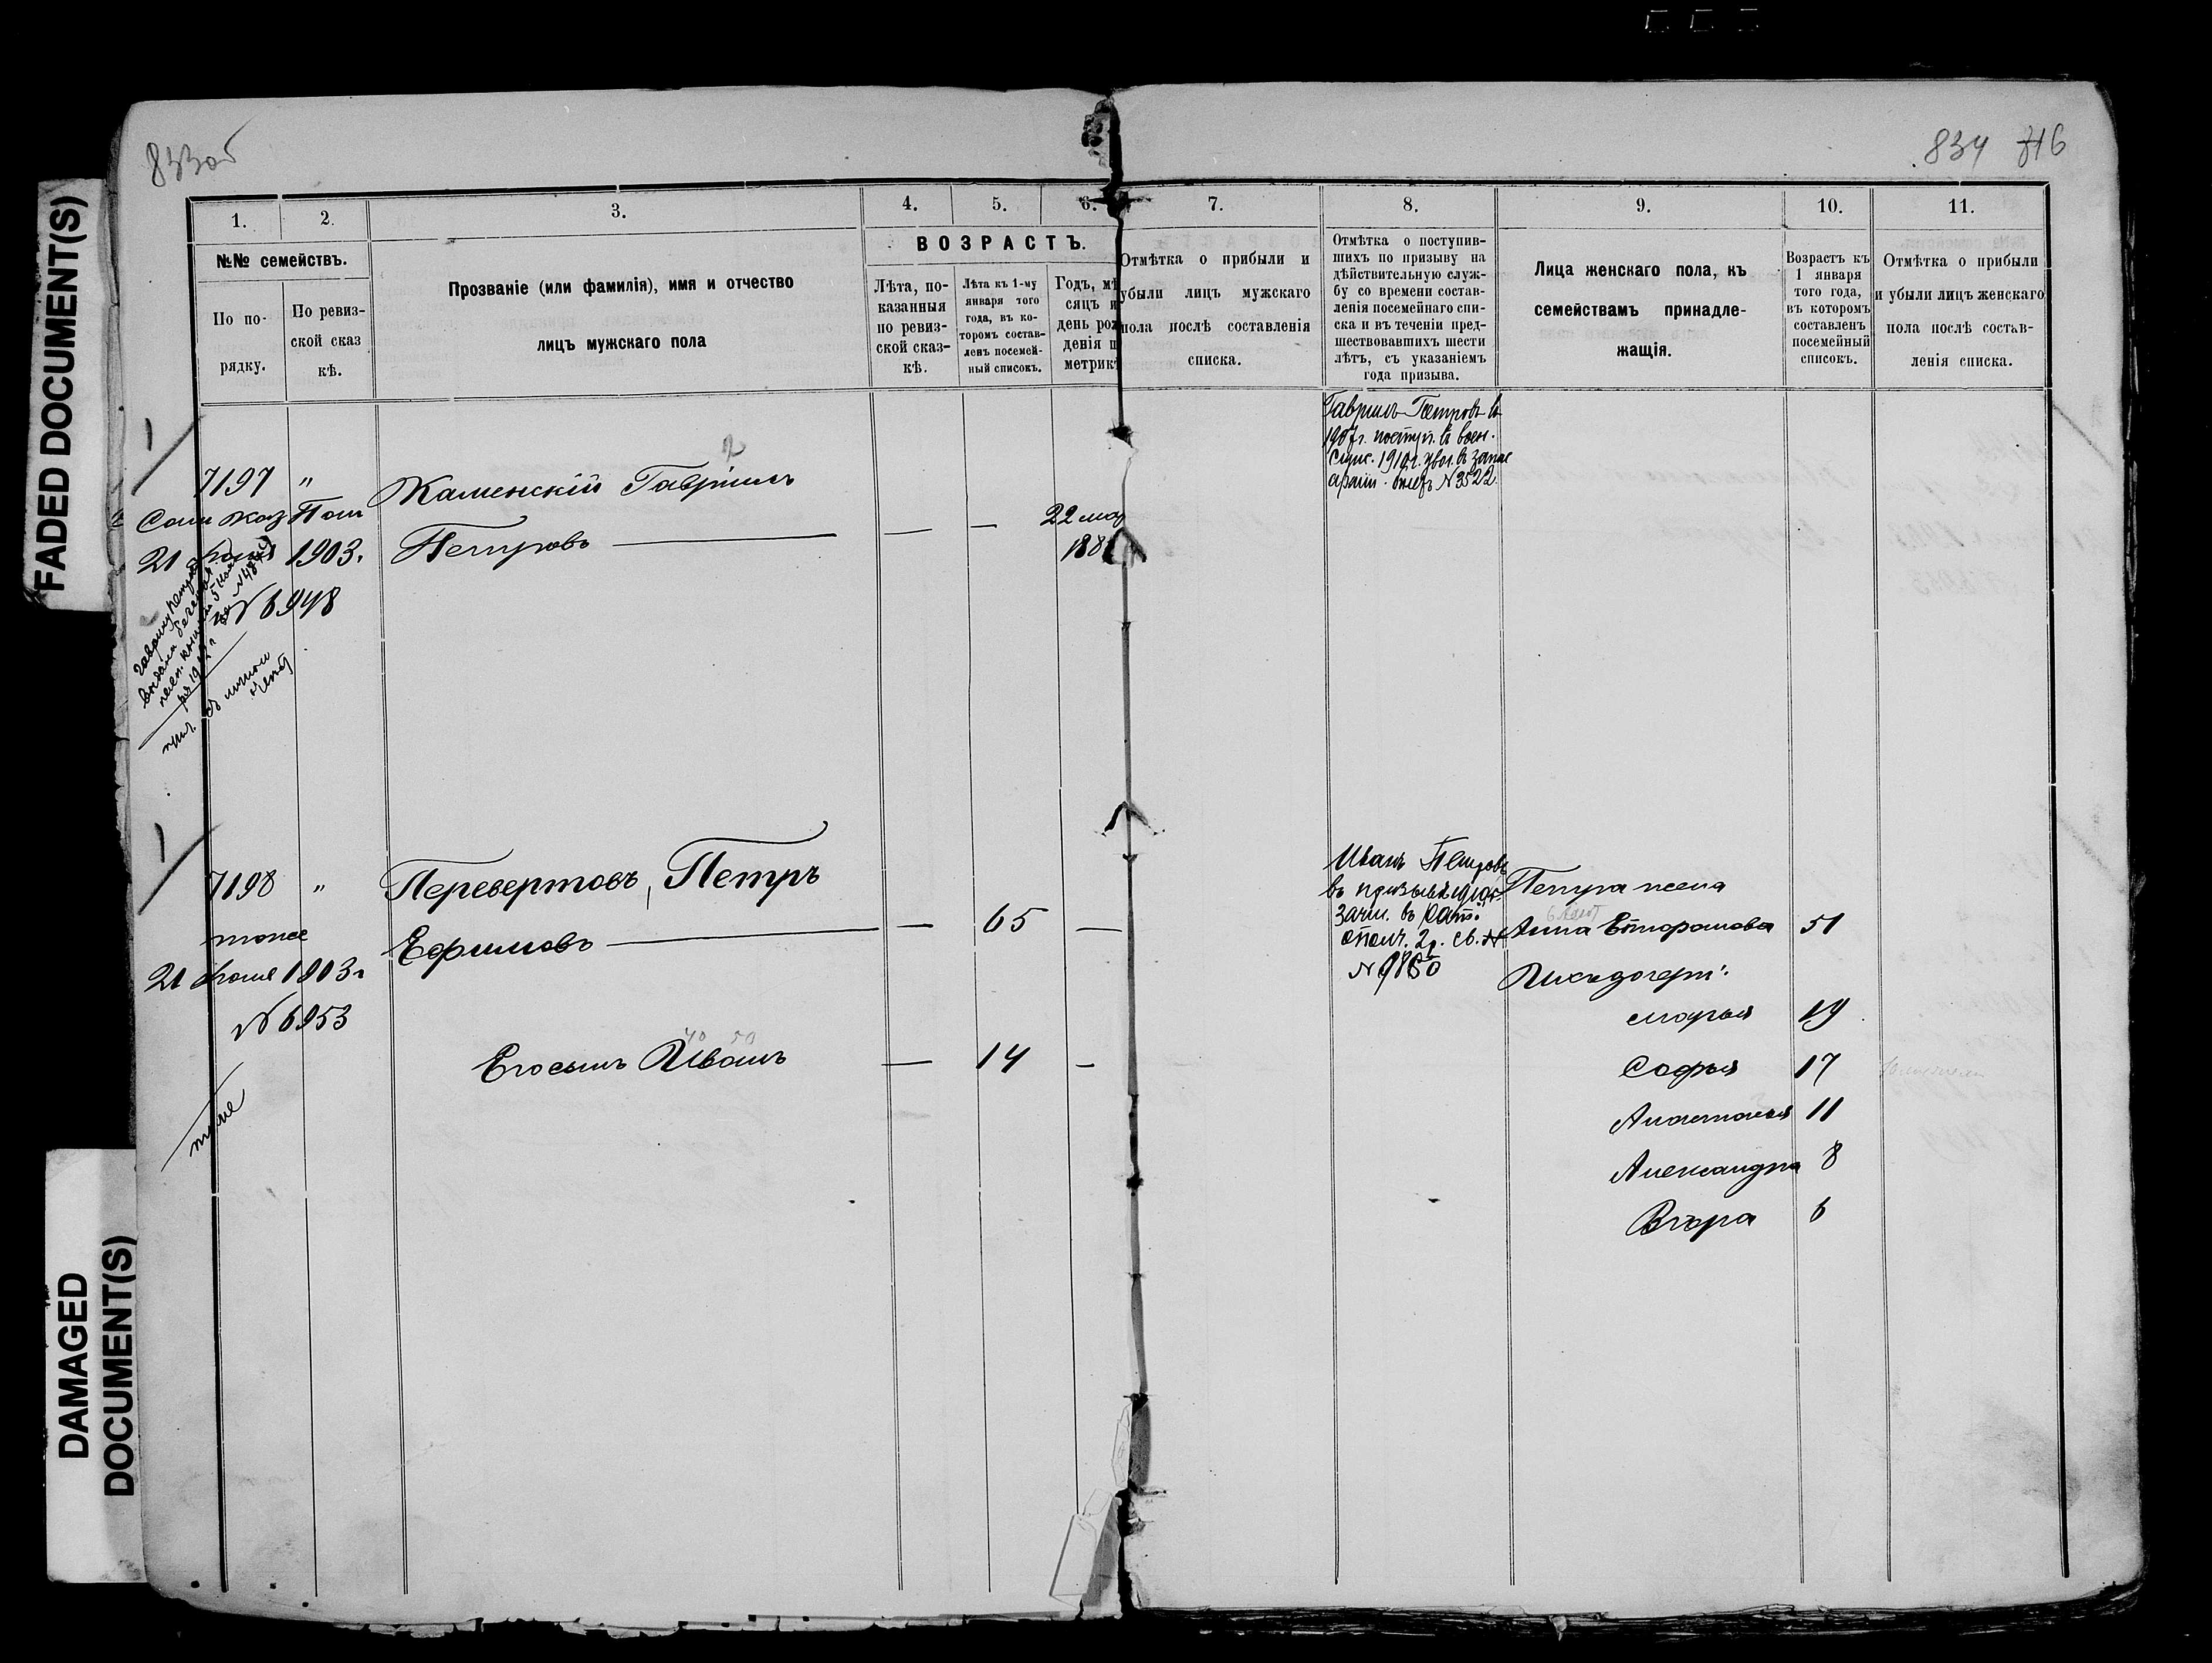 FADED DOCUMENT(S)
DAMAGED
DOCUMENT(S)
833об
834 816
1. 2. 3. 4. 5. 6.
№№ семействъ.
По по-
рядку.
По ревиз-
ской сказ
кѣ.
Прозваніе (или фамилія), имя и отчество
лицъ мужскаго пола
ВОЗРАСТЪ.
Лѣта, по-
казанныя
по ревиз-
ской сказ-
кѣ.
Лѣта къ 1-му
января того
года, въ ко-
торомъ состав-
ленъ посемей-
ный список.
Годъ, мѣ
сяцъ и
день рож
денія п
метрик
7. 8. 9. 10. 11.
Отмѣтка о прибыли и
убыли лицъ мужскаго
пола послѣ составленія
списка.
Отмѣтка о поступив-
шихъ по призыву на
дѣйствительную служ-
бу со времени состав-
ленія посемейнаго спи-
ска и въ теченіи пред-
шествовавшихъ шести
лѣтъ, съ указаніемъ
года призыва.
Лица женскаго пола, къ
семействамъ принадле-
жащія.
Возрастъ къ
1 января
того года,
въ которомъ
составленъ
посемейный
списокъ.
Отмѣтка о прибыли
и убыли лицъ женскаго
пола послѣ состав-
ленія списка.
1
7197 "
Каз Пал
21 1903.
№ 6948
Каменскій Гавріилъ
Петровъ — —
22 мар
188
Гавриилъ Петровъ въ
1907г. поступ. въ воен.
служ. 1910г. увол. въ запас
арміи. билетъ №3522
1
7198 "
тоже
21 1903г
№ 6953
тоже
Перевертовъ, Петръ
Ефимовъ — 65 —
Его сынъ Иванъ — 14 -
Иванъ Петровъ
въ призывъ
зачис. въ рат.
ополч. 2р. св.
№ 9850
Петра жена
Анна 51
Ихъ дочери:
Марья 19
Софья 17
Анастасья 11
Александра 8
Вѣра 6